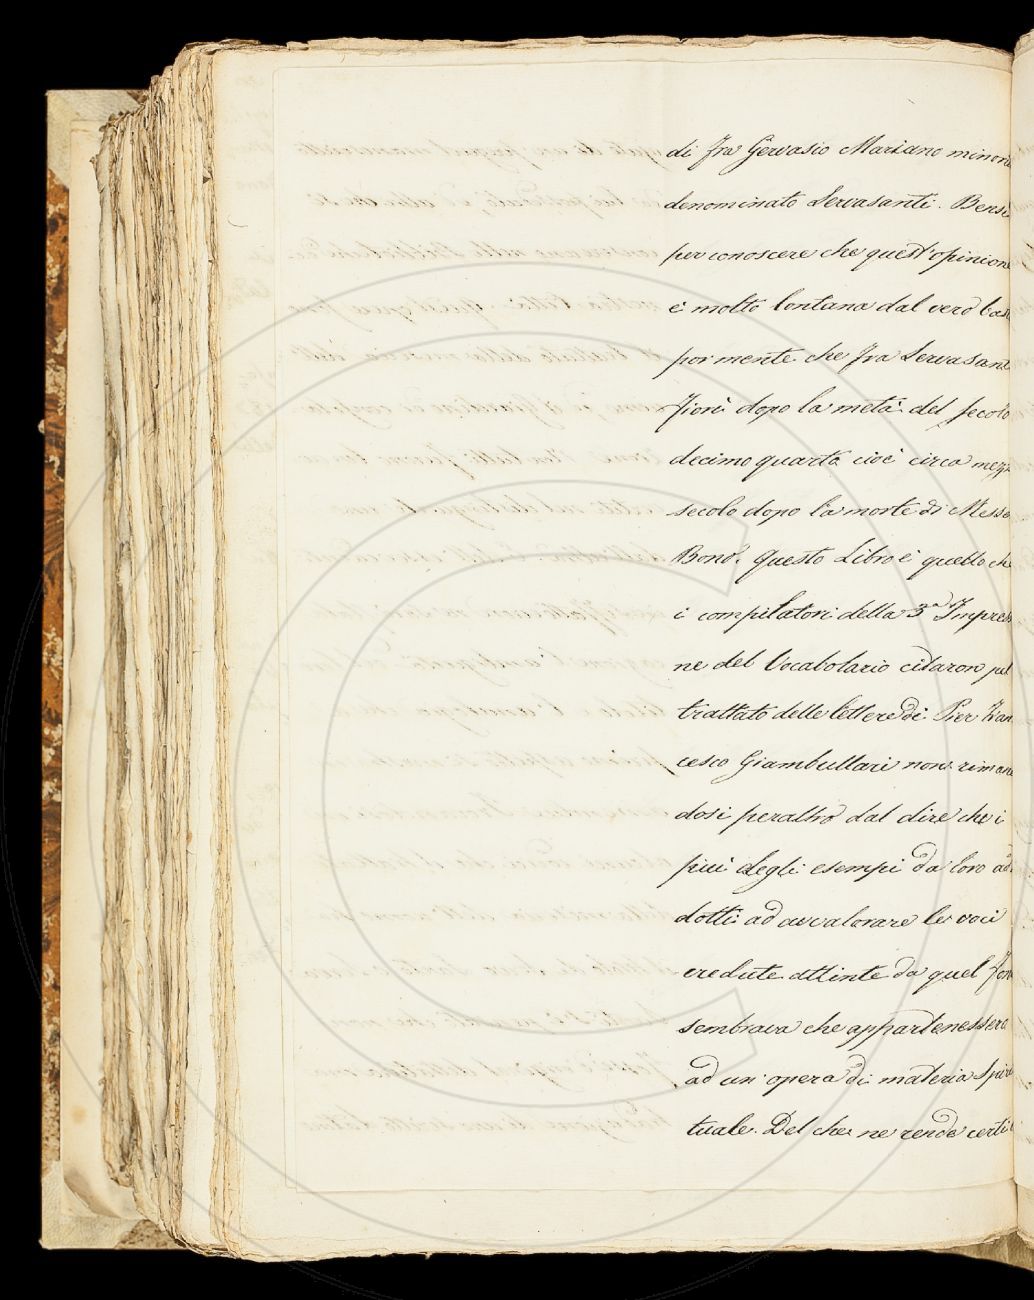 di Fra Gervasio Mariano minori
denominato Servasanti. Bensi
per conoscere che quest'opinione
è molto lontana dal vero bas
por mente che Fra Servasant
fiori dopo la metà del secolo
decimo quarto cioè circa mezz
secolo dopo la morte di Messe
Bono. Questo Libro è quello che
i compilatori della 3ª Impres
ne del Vocabolario citaron pel
trattato delle lettere di Pier Fran
cesco Giambullari non riman
dosi peraltro dal dire che i
più degli esempi da loro ad
dotti ad avvalorare le voci
credute attinte da quel fon
sembrava che appartenessero
ad un'opera di materia Spiri
tuale. Del che ne rende certi